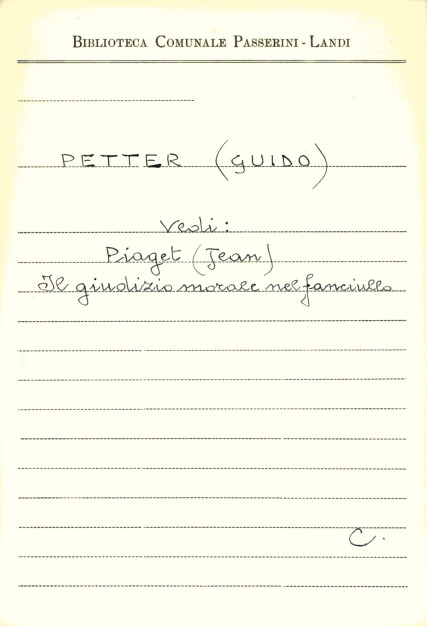 BIBLIOTECA COMUNALE PASSERINI - LANDI
PETTER (GUIDO)
Vedi:
Piaget (Jean)
Il giudizio morale nel fanciullo
C.